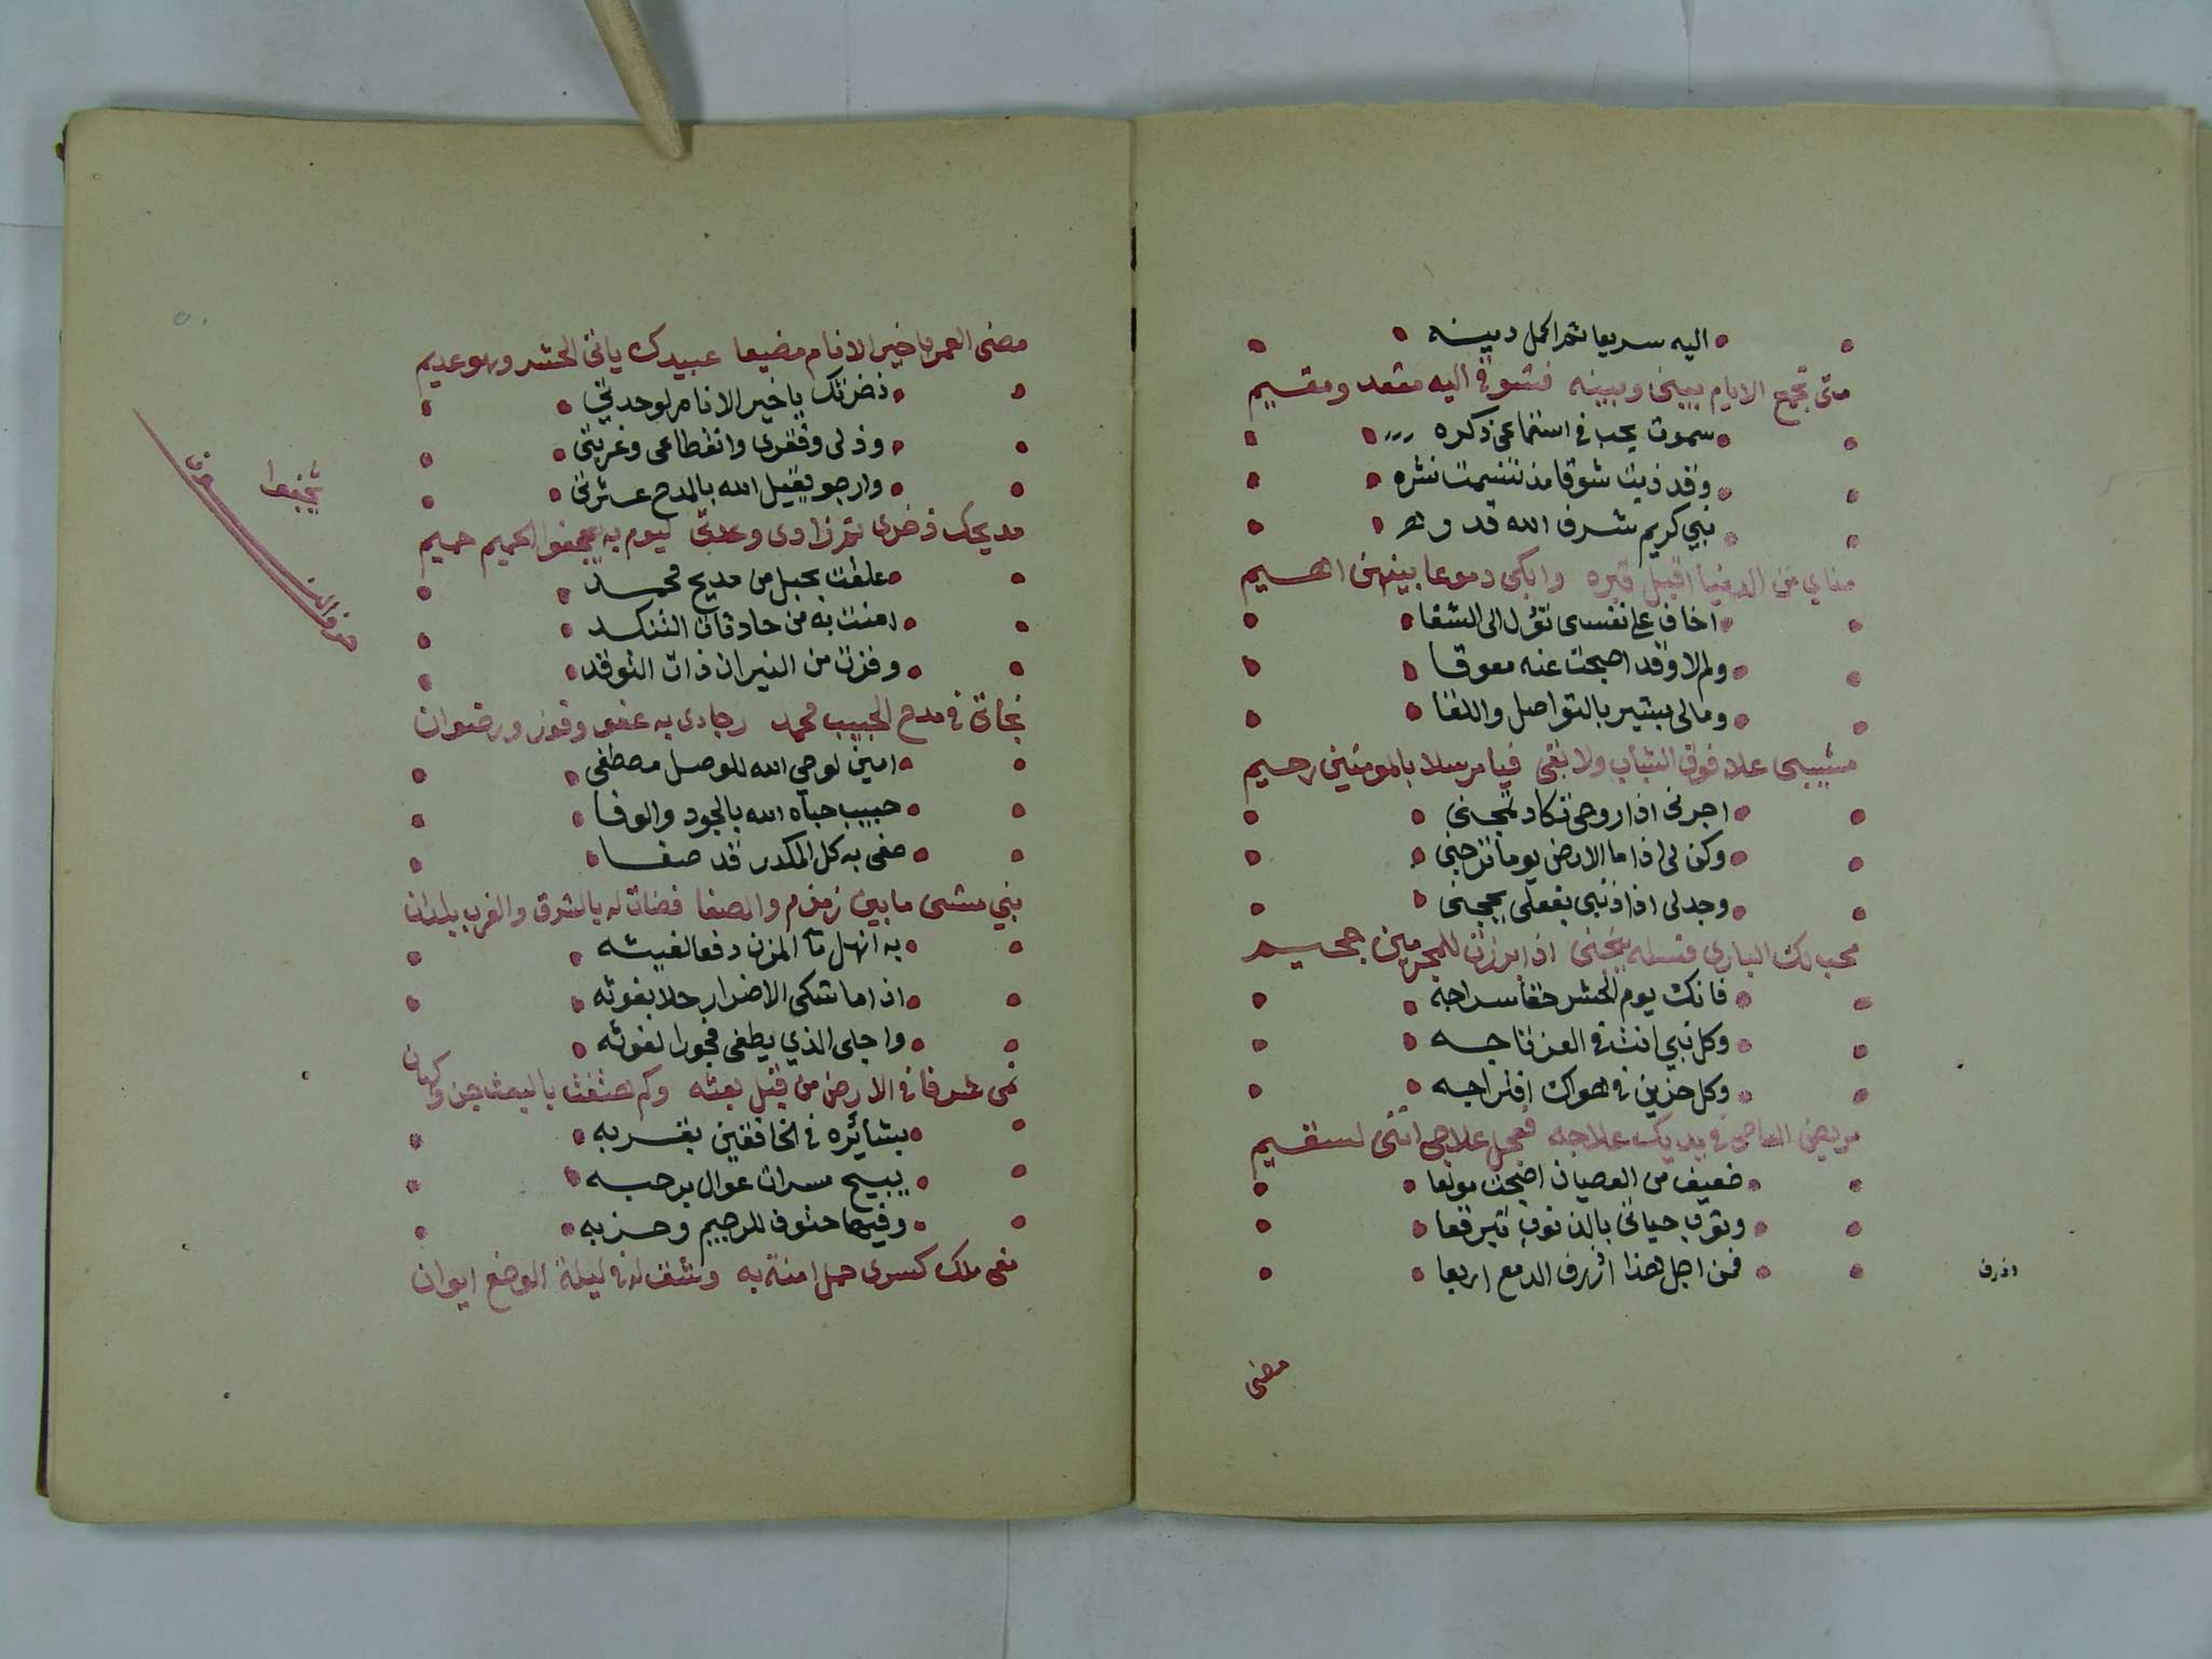 اليه سريعا ثم اكمل دينه
متى تجمع الايام بيني وبينه فشوقي اليه مقعد ومقيم
سموت بحب في استماعي ذكره
وقد ذبت شوقا مذ تنسيمت نشره
نبي كريم شرف الله قدره
مناي من الدنيا اقبل قبره وابكي دموعا بينهن اهيم
اخاف على نفسي تؤل الى الشقا
ولم لا وقد اصبحت عنه معوقا
ومالي بشير بالتواصل واللقا
مشيبي علا فوق الشباب ولا بقى فيا مرسلا بالمومنين رحيم
اجرني اذا روحي تكاد
وكن لي اذا ما الارض يوما ترجني
وجد لي اذا ذنبي بفعلي يحجني
محب لك الباري فسله ينجني اذا ابرزت للمجرمين جحيم
فانك يوم الحشر حقا سراجه
وكل نبي انت في العز تاجه
وكل حزين في هواك افتراجه
مريض المعاصي في يديك علاجه فعجل علاجي انني لسقيم
ضعيف من العصيان اضحيت مولعا
وثوب حياتي بالذنوب تبرقعا
فمن اجل هذا اذرف الدمع اربعا
اذرف
مضى
مضى العمر يا خير الانام مضيعا عبيدك ياتي الحشر وهو عديم
ذخرتك يا خير الانام لوحدتي
وذلي وفقري وانقطاعي وغربتي
وارجو يقيل الله بالمدح عثرتي
مديحك ذخري ثم زادي وعدتي ليوم به يجفو الحميم حميم
علقت بحبل من مديح محمد
امنت به من حادثات التنكد
وفزت من النيران ذات التوقد
نجاتي في مدح الحبيب محمد رجادي به عفو وفوز ورضوان
امين لوحي الله للوصل مصطفى
حبيب حباه الله بالجود والوفا
صفي به كل المكدر قد صفا
نبي مشى ما بين زمزم والصفا فضات له بالشرق والغرب بلدان
به انهل ماء المزن دفعا لغيثه
اذا ما شكى الاضرار جلا بغوثه
واجلى الذي يطغى فجورا لغوثه
نمى شرفا في الارض من قبل بعثه وكم هتفت بالبعث جن وكهان
بشائره في الخافقين بقربه
يبيح مسرات عوال برحبه
وفيها حتوف للرجيم وحزبه
نعى ملك كسرى حمل امنة به وشق له في ليلة الوضع ايوان
حرف النون